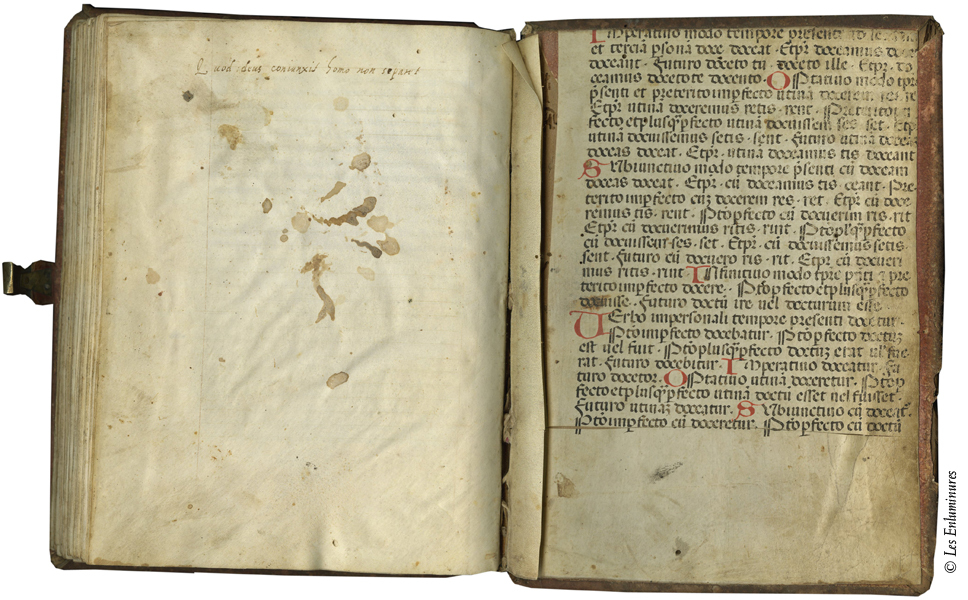 Quod deus coniunxit homo non separet
Imperatiuo modo tempore presenti
et tercia psona doce doceat. Etpr. doceamus
doceant. Futuro doceto tu doceto ille. Etpr. do
ceamus docetote docento. Optatiuo modo tpre
psenti et preterito impfecto utina docerem
Etpr utina doceremus retis. rent. Preterito
fecto et plusqpfecto utina docuissem ses. set. Etpr
utina docuissemus setis. sent. Futuro utina
doceas doceat. Etpr. utina doceamus tis doceant
Subiunctiuo modo tempore psenti cu doceam
doceas doceat. Etpr. cu doceamus tis. ceant. Pre
terito impfecto cuz docerem res. ret. Etpr cu doce
remus tis. rent. Pto pfecto cu docuerim ris. rit
Etpr cu docuerimus ritis. rint. Pto plusqpfecto
cu docuissem. ses. set. Etpr. cu docuissemus setis
sent. Futuro cu docuero ris. rit. Etpr cu docueri
mus ritis. rint Infinitiuo modo tpre pnti a pre
terito impfecto docere. Pto pfecto et plusqpfecto
docuisse. Futuro doctu ire uel docturum esse
Uerbo impersonali tempore presenti docetur.
Pto impfecto docebatur. Pto pfecto doctuz
est uel fuit. Pto plusqpfecto doctuz erat ul fue
rat. Futuro docebitur. Imperatiuo doceatur. Fu
turo docetor. Optatiuo utina doceretur. Pto p
fecto et plusqpfecto utina doctu esset uel fuisset
Futuro utinaz doceatur. Subiunctiuo cu doceat
Pto impfecto cu doceretur. Pto pfecto cu doctu
© Les Enluminures